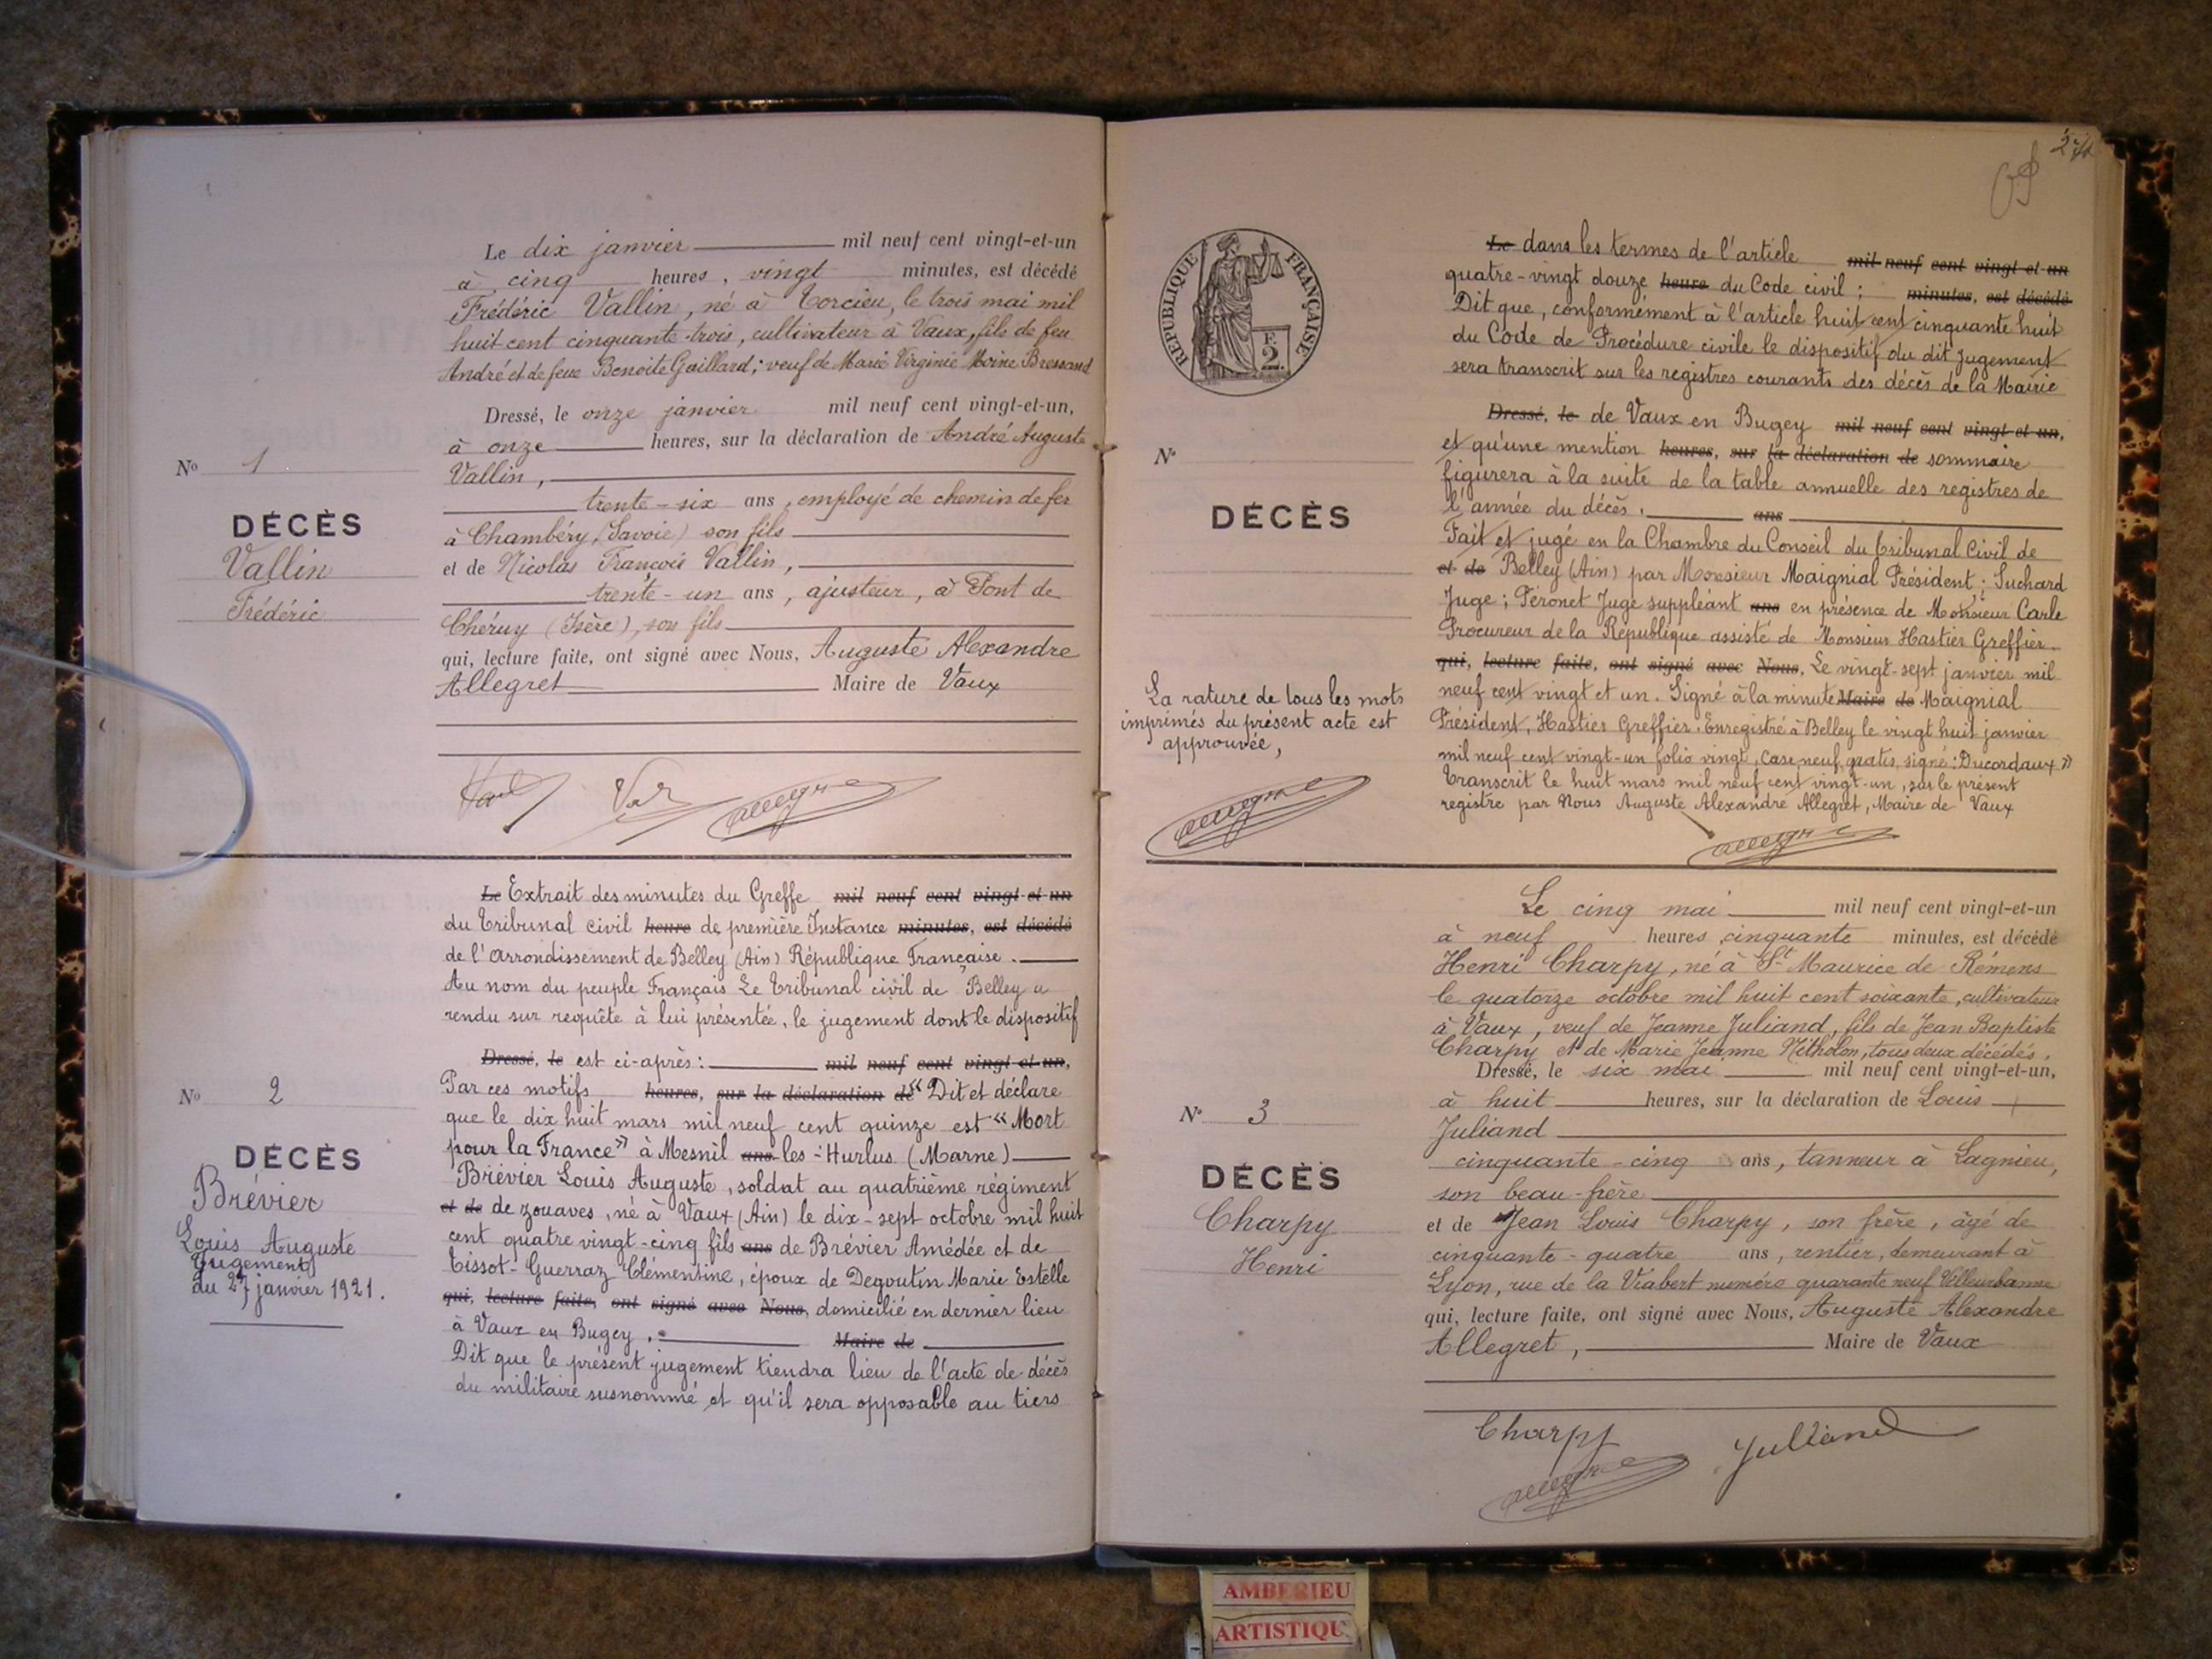 Le dix janvier mil neuf cent vingt-et-un
à cinq heures, vingt minutes, est décédé
Frédéric Vallin, né à Torcieu, le trois mai mil
huit cent cinquante-trois, cultivateur à Vaux, fils de feu
André et de feue Benoite Gaillard; veuf de Marie Virginie Moine Bressand
Dressé, le onze janvier mil neuf cent vingt-et-un,
à onze heures, sur la déclaration de André Auguste
Vallin,
trente-six ans, employé de chemin de fer
à Chambéry, (Savoie) son fils
et de Nicolas François Vallin,
trente-un ans, ajusteur, à Pont de
Chéruy (Isère), son fils
qui, lecture faite, ont signé avec Nous, Auguste Alexandre
Allegret Maire de Vaux
No 1
DÉCÈS
Vallin
Frédéric
Le Extrait des minutes du Greffe mil neuf cent vingt-et-un
du Tribunal civil heure de première Instance minutes, est décédé
de l'arrondissement de Belley (Ain) République Française.
Au nom du peuple Français Le Tribunal civil de Belley a
rendu sur requête à lui présentée, le jugement dont le dispositif
Dressé, le est ci-après: mil neuf cent vingt-et-un,
Par ces motifs heures, sur la déclaration de « Dit et déclare
que le dix huit mars mil neuf cent quinze est « Mort
pour la France » à Mesnil ans les-Hurlus (Marne)
Brévier Louis Auguste, soldat au quatrième régiment
et de de zouaves, né à Vaux (Ain) le dix-sept octobre mil huit
cent quatre vingt-cinq fils ans de Brévier Amédée et de
Tissot-Guerraz Clémentine, époux de Degoutin Marie Estelle
qui, lecture faite, ont signé avec Nous, domicilié en dernier lieu
à Vaux en Bugey. Maire de
Dit que le présent jugement tiendra lieu de l'acte de décès
du militaire susnommé et qu'il sera opposable au tiers
No 2
DÉCÈS
Brévier
Louis Auguste
Jugement
du 27 janvier 1921.
RÉPUBLIQUE FRANÇAISE
E.
2.
Le dans les termes de l'article mil neuf cent vingt-et-un
quatre-vingt douze heure du Code civil; minutes, est décédé
Dit que, conformément à l'article huit cent cinquante huit
du Code de Procédure civile le dispositif du dit jugement
sera transcrit sur les registres courants des décès de la Mairie
Dressé, le de Vaux en Bugey mil neuf cent vingt-et-un,
et qu'une mention heures, sur la déclaration de sommaire
figurera à la suite de la table annuelle des registres de
l'année du décès. ans
Fait et jugé en la Chambre du Conseil du Tribunal Civil de
et de Belley (Ain) par Monsieur Maignial Président; Suchard
Juge; Péronet Juge suppléant ans en présence de Monsieur Carle
Procureur de la République assisté de Monsieur Hastier Greffier.
qui, lecture faite, ont signé avec Nous, Le vingt-sept janvier mil
neuf cent vingt et un. Signé à la minute Maire de Maignial
Président, Hastier Greffier. Enregistré à Belley le vingt huit janvier
mil neuf cent vingt-un folio vingt, case neuf, gratis, signé: Ducordaux »
Transcrit le huit mars mil neuf cent vingt-un, sur le présent
registre par Nous Auguste Alexandre Allegret, Maire de Vaux
No
DÉCÈS
La rature de tous les mots
imprimés du présent acte est
approuvée,
Le cinq mai mil neuf cent vingt-et-un
à neuf heures, cinquante minutes, est décédé
Henri Charpy, né à St Maurice de Rémens
le quatorze octobre mil huit cent soixante, cultivateur
à Vaux, veuf de Jeanne Juliand, fils de Jean Baptiste
Charpy et de Marie Jeanne tous deux décédés.
Dressé, le six mai mil neuf cent vingt-et-un,
à huit heures, sur la déclaration de Louis
Juliand
cinquante-cinq ans, tanneur à Lagnieu,
son beau-frère
et de Jean Louis Charpy, son frère, âgé de
cinquante-quatre ans, rentier, demeurant à
Lyon, rue de la Viabert numéro quarante neuf Villeurbanne
qui, lecture faite, ont signé avec Nous, Auguste Alexandre
Allegret, Maire de Vaux
Charpy
Julliand
No 3
DÉCÈS
Charpy
Henri
AMBERIEU
ARTISTIQU